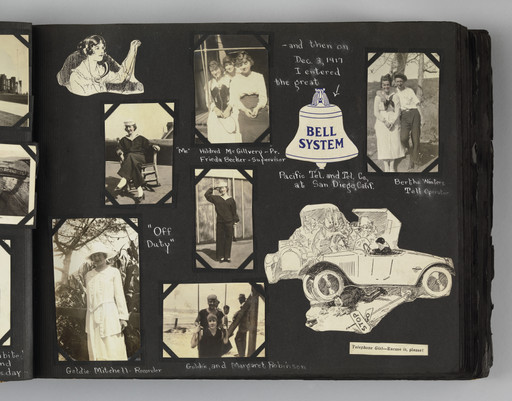 -and then on
Dec 3, 1917
I entered
the great
BELL
SYSTEM
"Me" Hildred McGillvery-Pr.
Frieda Becker-Supervisor
Pacific Tel. and Tel. Co.
at San Diego, Calif.
Bertha
Toll Operator
"Off
Duty"
STOP
GO
Telephone Girl—Excuse it, please!
Goldie Mitchell-Recorder
Goldie, and Margaret Robinson